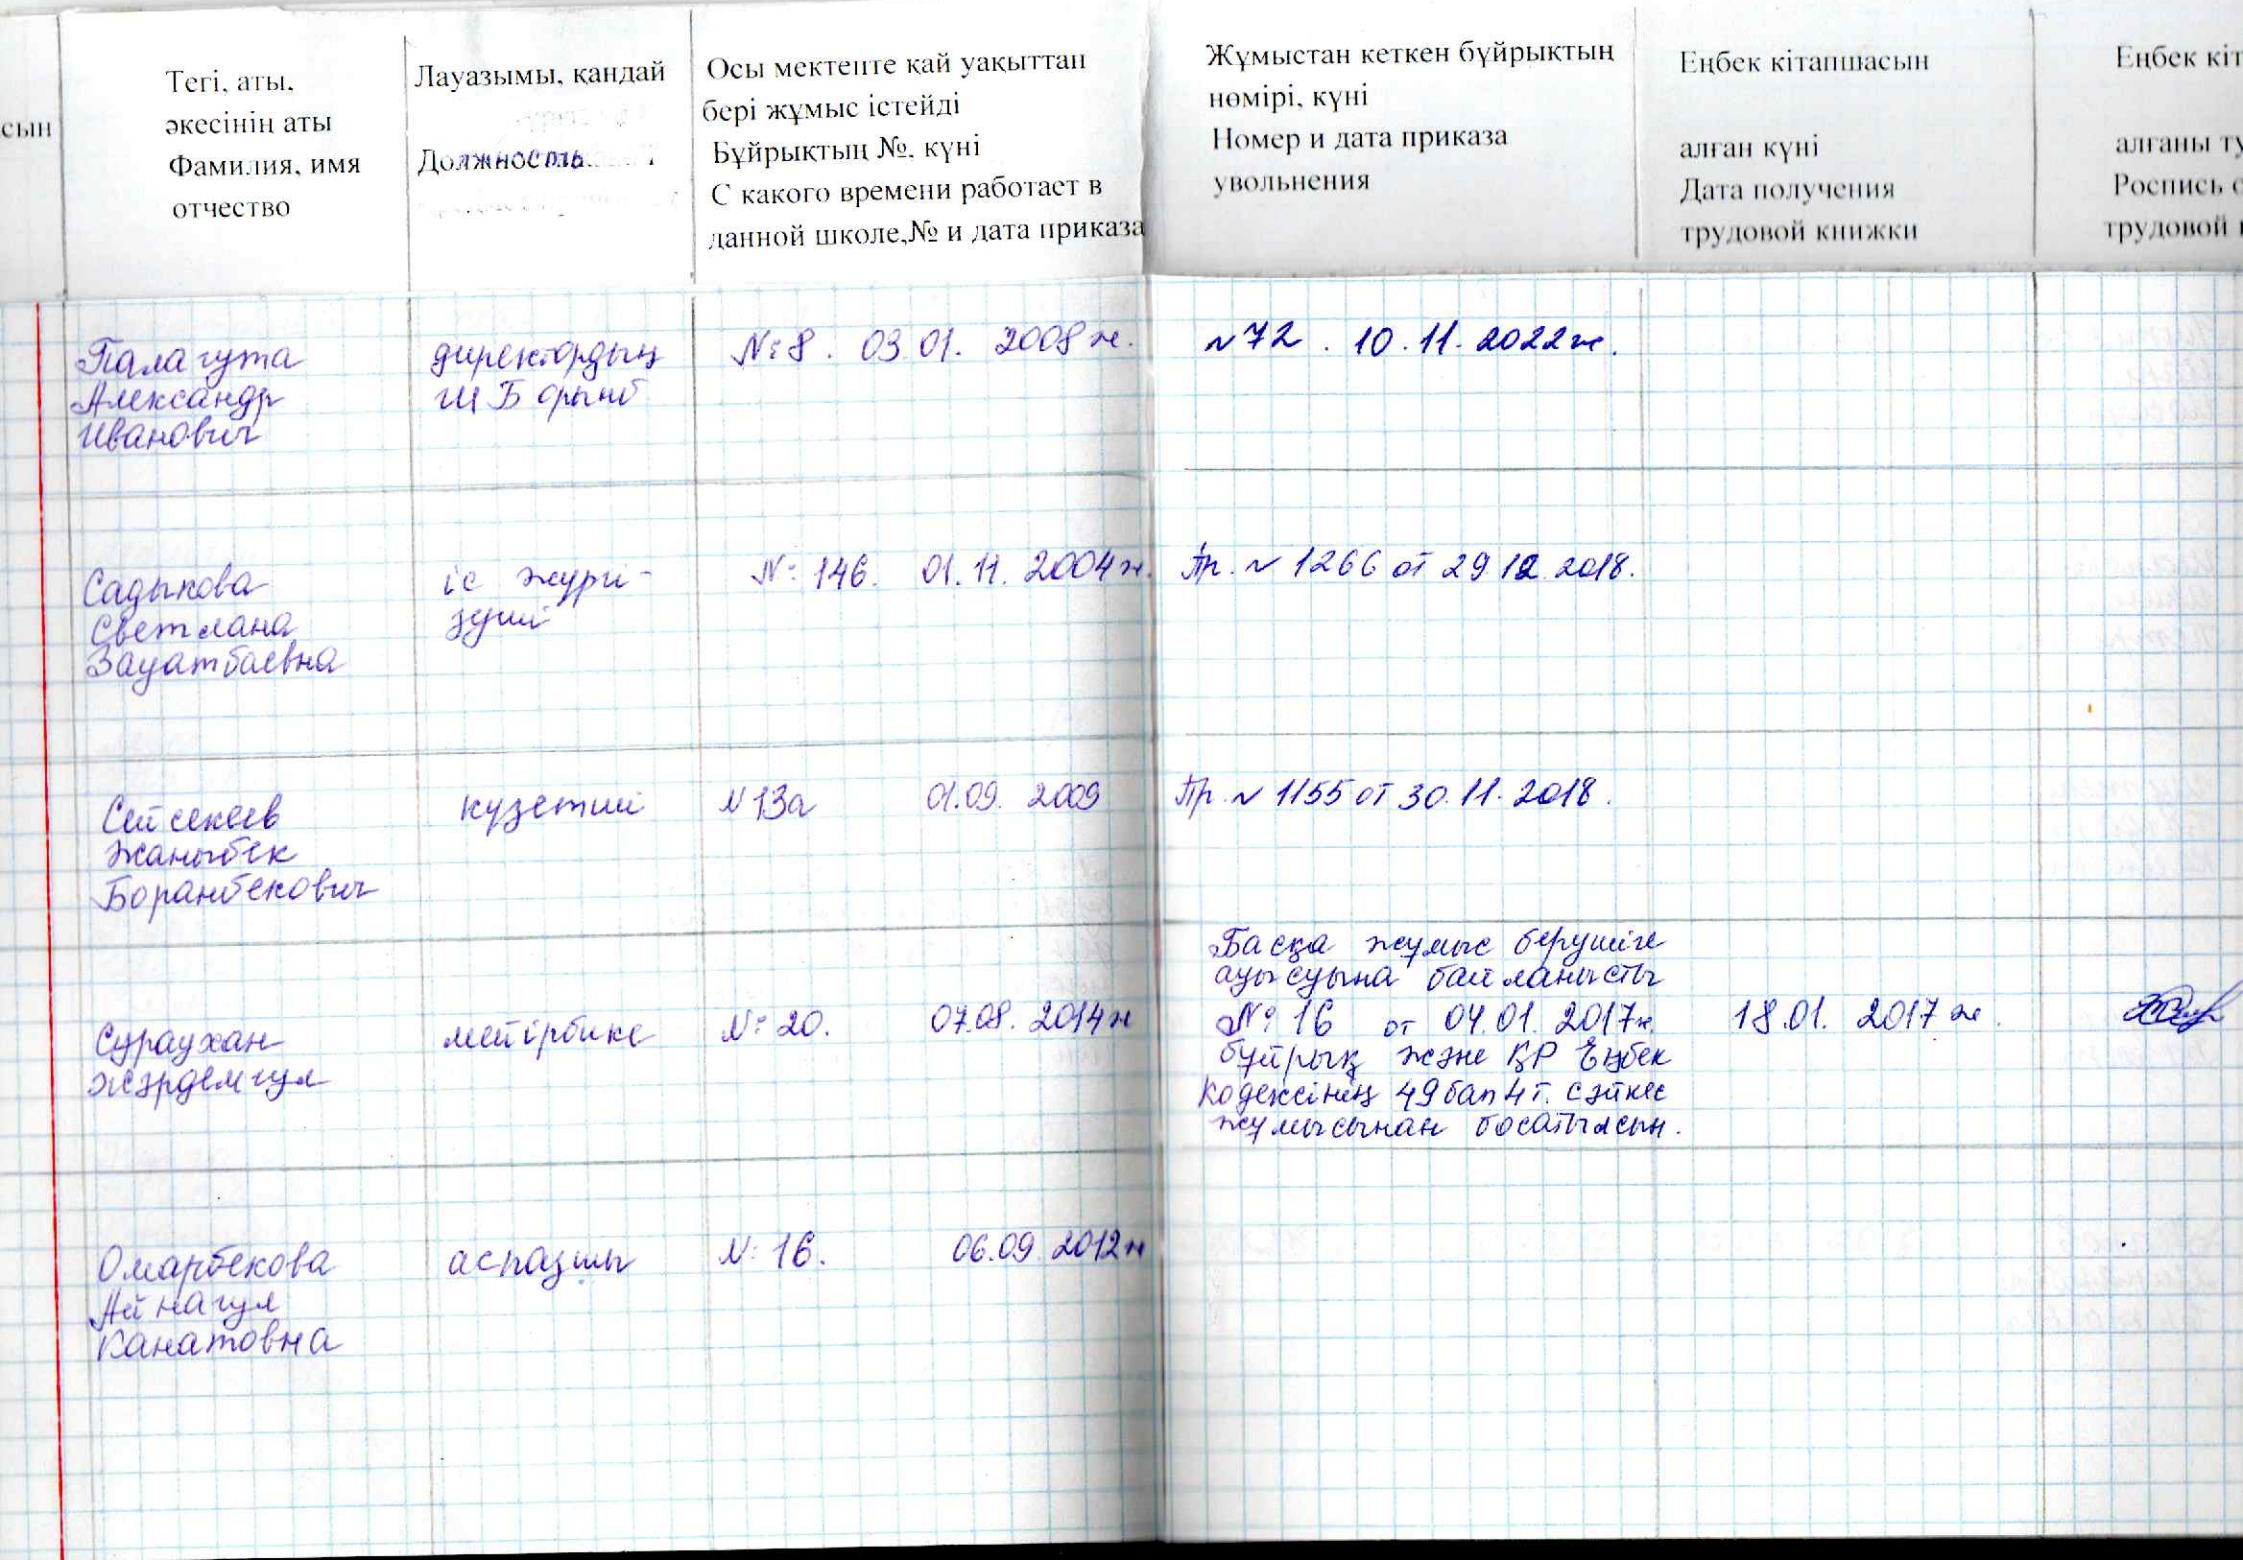 сын
Тегі, аты,
әкесінің аты
Фамилия, имя
отчество
Лауазымы, қандай
Должность
Осы мектепте қай уақыттан
бері жұмыс істейді
Бұйрықтың №, күні
С какого времени работает в
данной школе,№ и дата приказа
Жұмыстан кеткен бұйрықтың
нөмірі, күні
Номер и дата приказа
увольнения
Еңбек кітапшасын
алған күні
Дата получения
трудовой книжки
Еңбек кіт
алғаны ту
Роспись с
трудовой
Палагута
Александр
Иванович
директордың
ШБ орынб
№ 8. 03.01. 2008 ж.
№72. 10.11.2022ж.
Садыкова
Светлана
Зауатбаевна
іс жүргі-
зуші
№ 146. 01.11. 2004 ж.
Пр. № 1266 от 29.12.2018.
Сейсекеев
Жаныбек
Боранбекович
күзетші
№13а 01.09. 2009
Пр. № 1155 от 30.11.2018.
Сураухан
Жәрдемгүл
мейірбике
№ 20. 07.08. 2014 ж
Басқа жұмыс берушіге
ауысуына байланысты
№ 16 от 04.01. 2017ж.
бұйрық және ҚР Еңбек
Кодексінің 49 бап 4т. сәйкес
жұмысынан босатылсын.
18.01. 2017 ж.
Омарбекова
Айнагул
Канатовна
аспазшы
№ 16. 06.09. 2012 ж